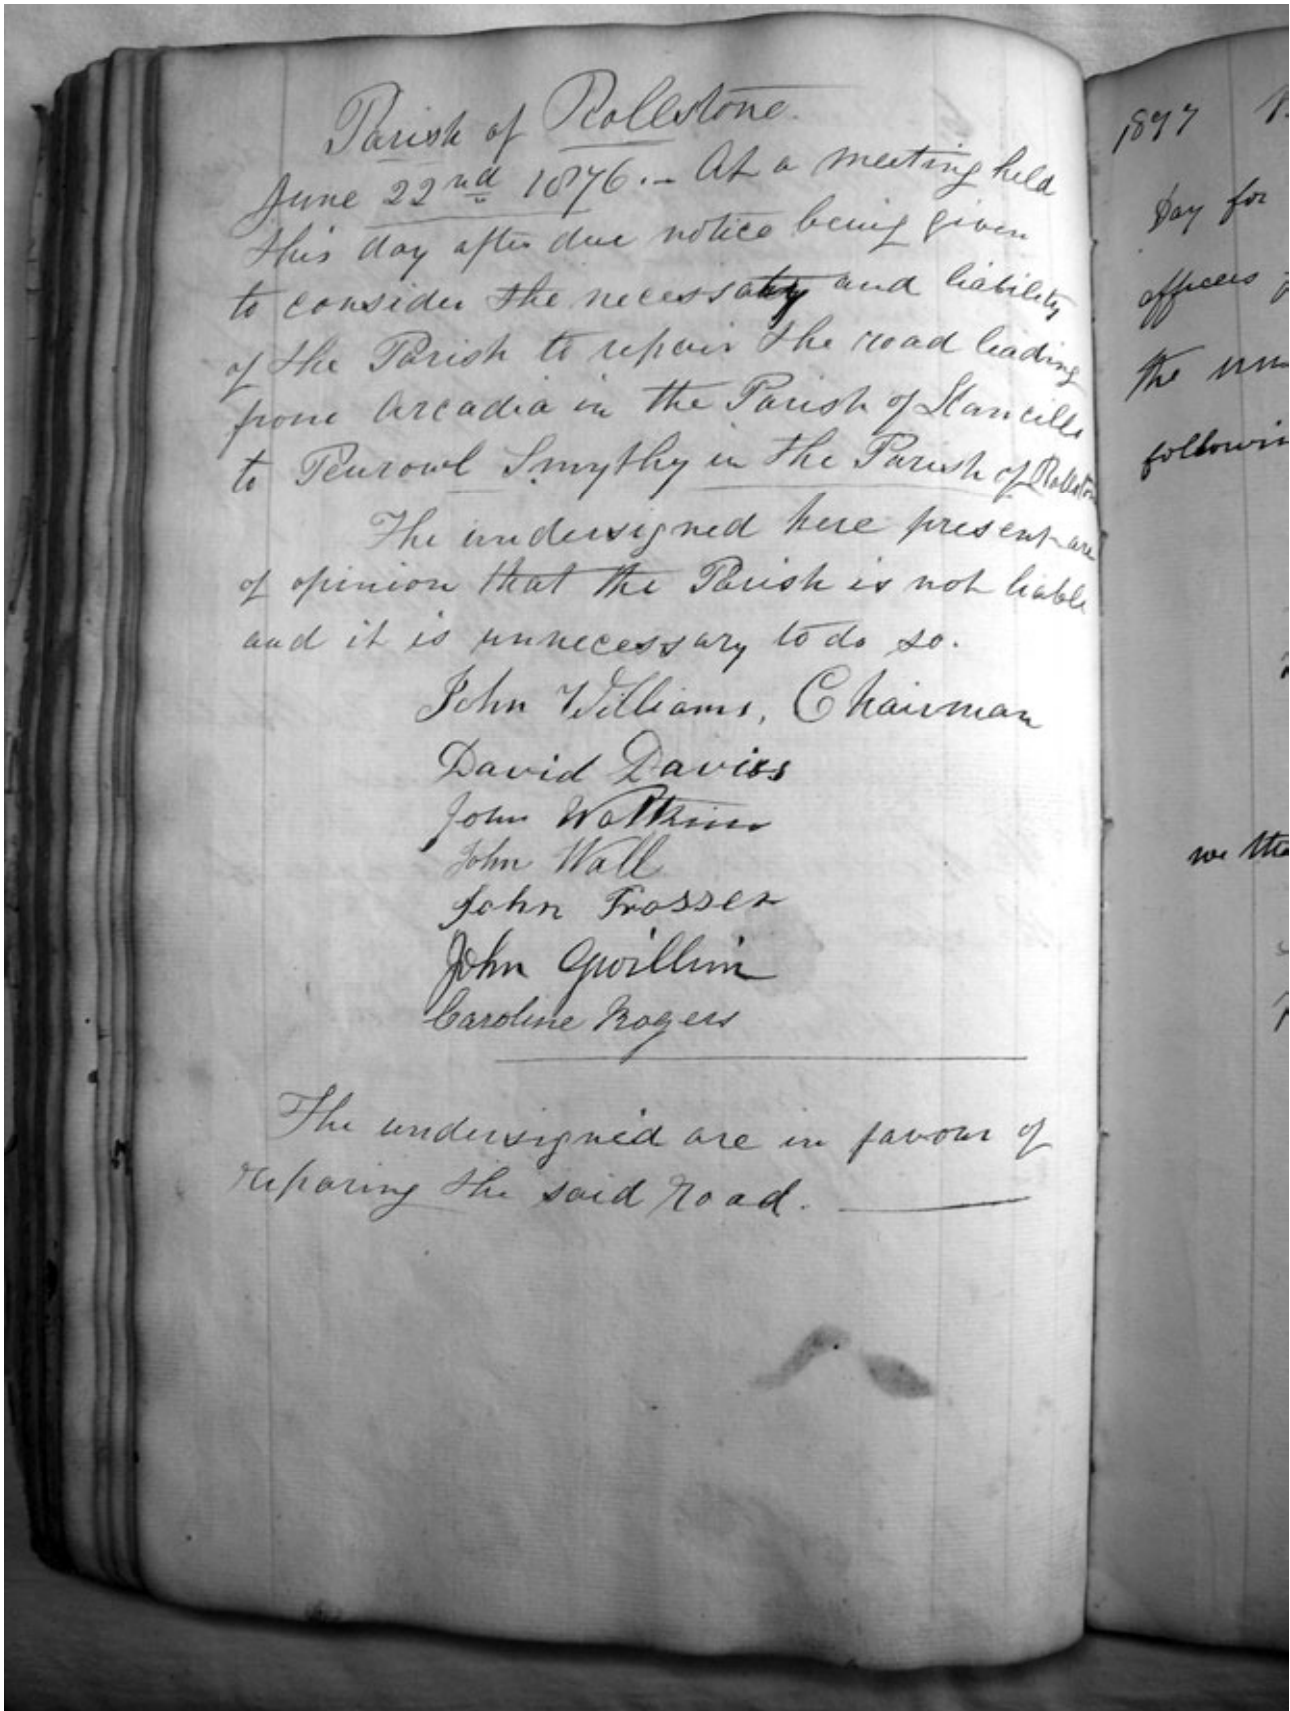 Parish of Rollstone.
June 22nd 1876. - At a meeting held
this day after due notice being given
to consider the necessaty and liability
of the Parish to repair the road leading
from Arcadia in the Parish of
to Penrowl Smythy in the Parish of Rollstone
The undersigned here present are
of opinion that the Parish is not liable
and it is unnecessary to do so.
John Williams, Chairman
David Davies
John Watkins
John Wall
John Prosser
John Gwillim
Caroline Rogers
The undersigned are in favour of
reparing the said road.
1877
Day for
officers
the
followin
we the